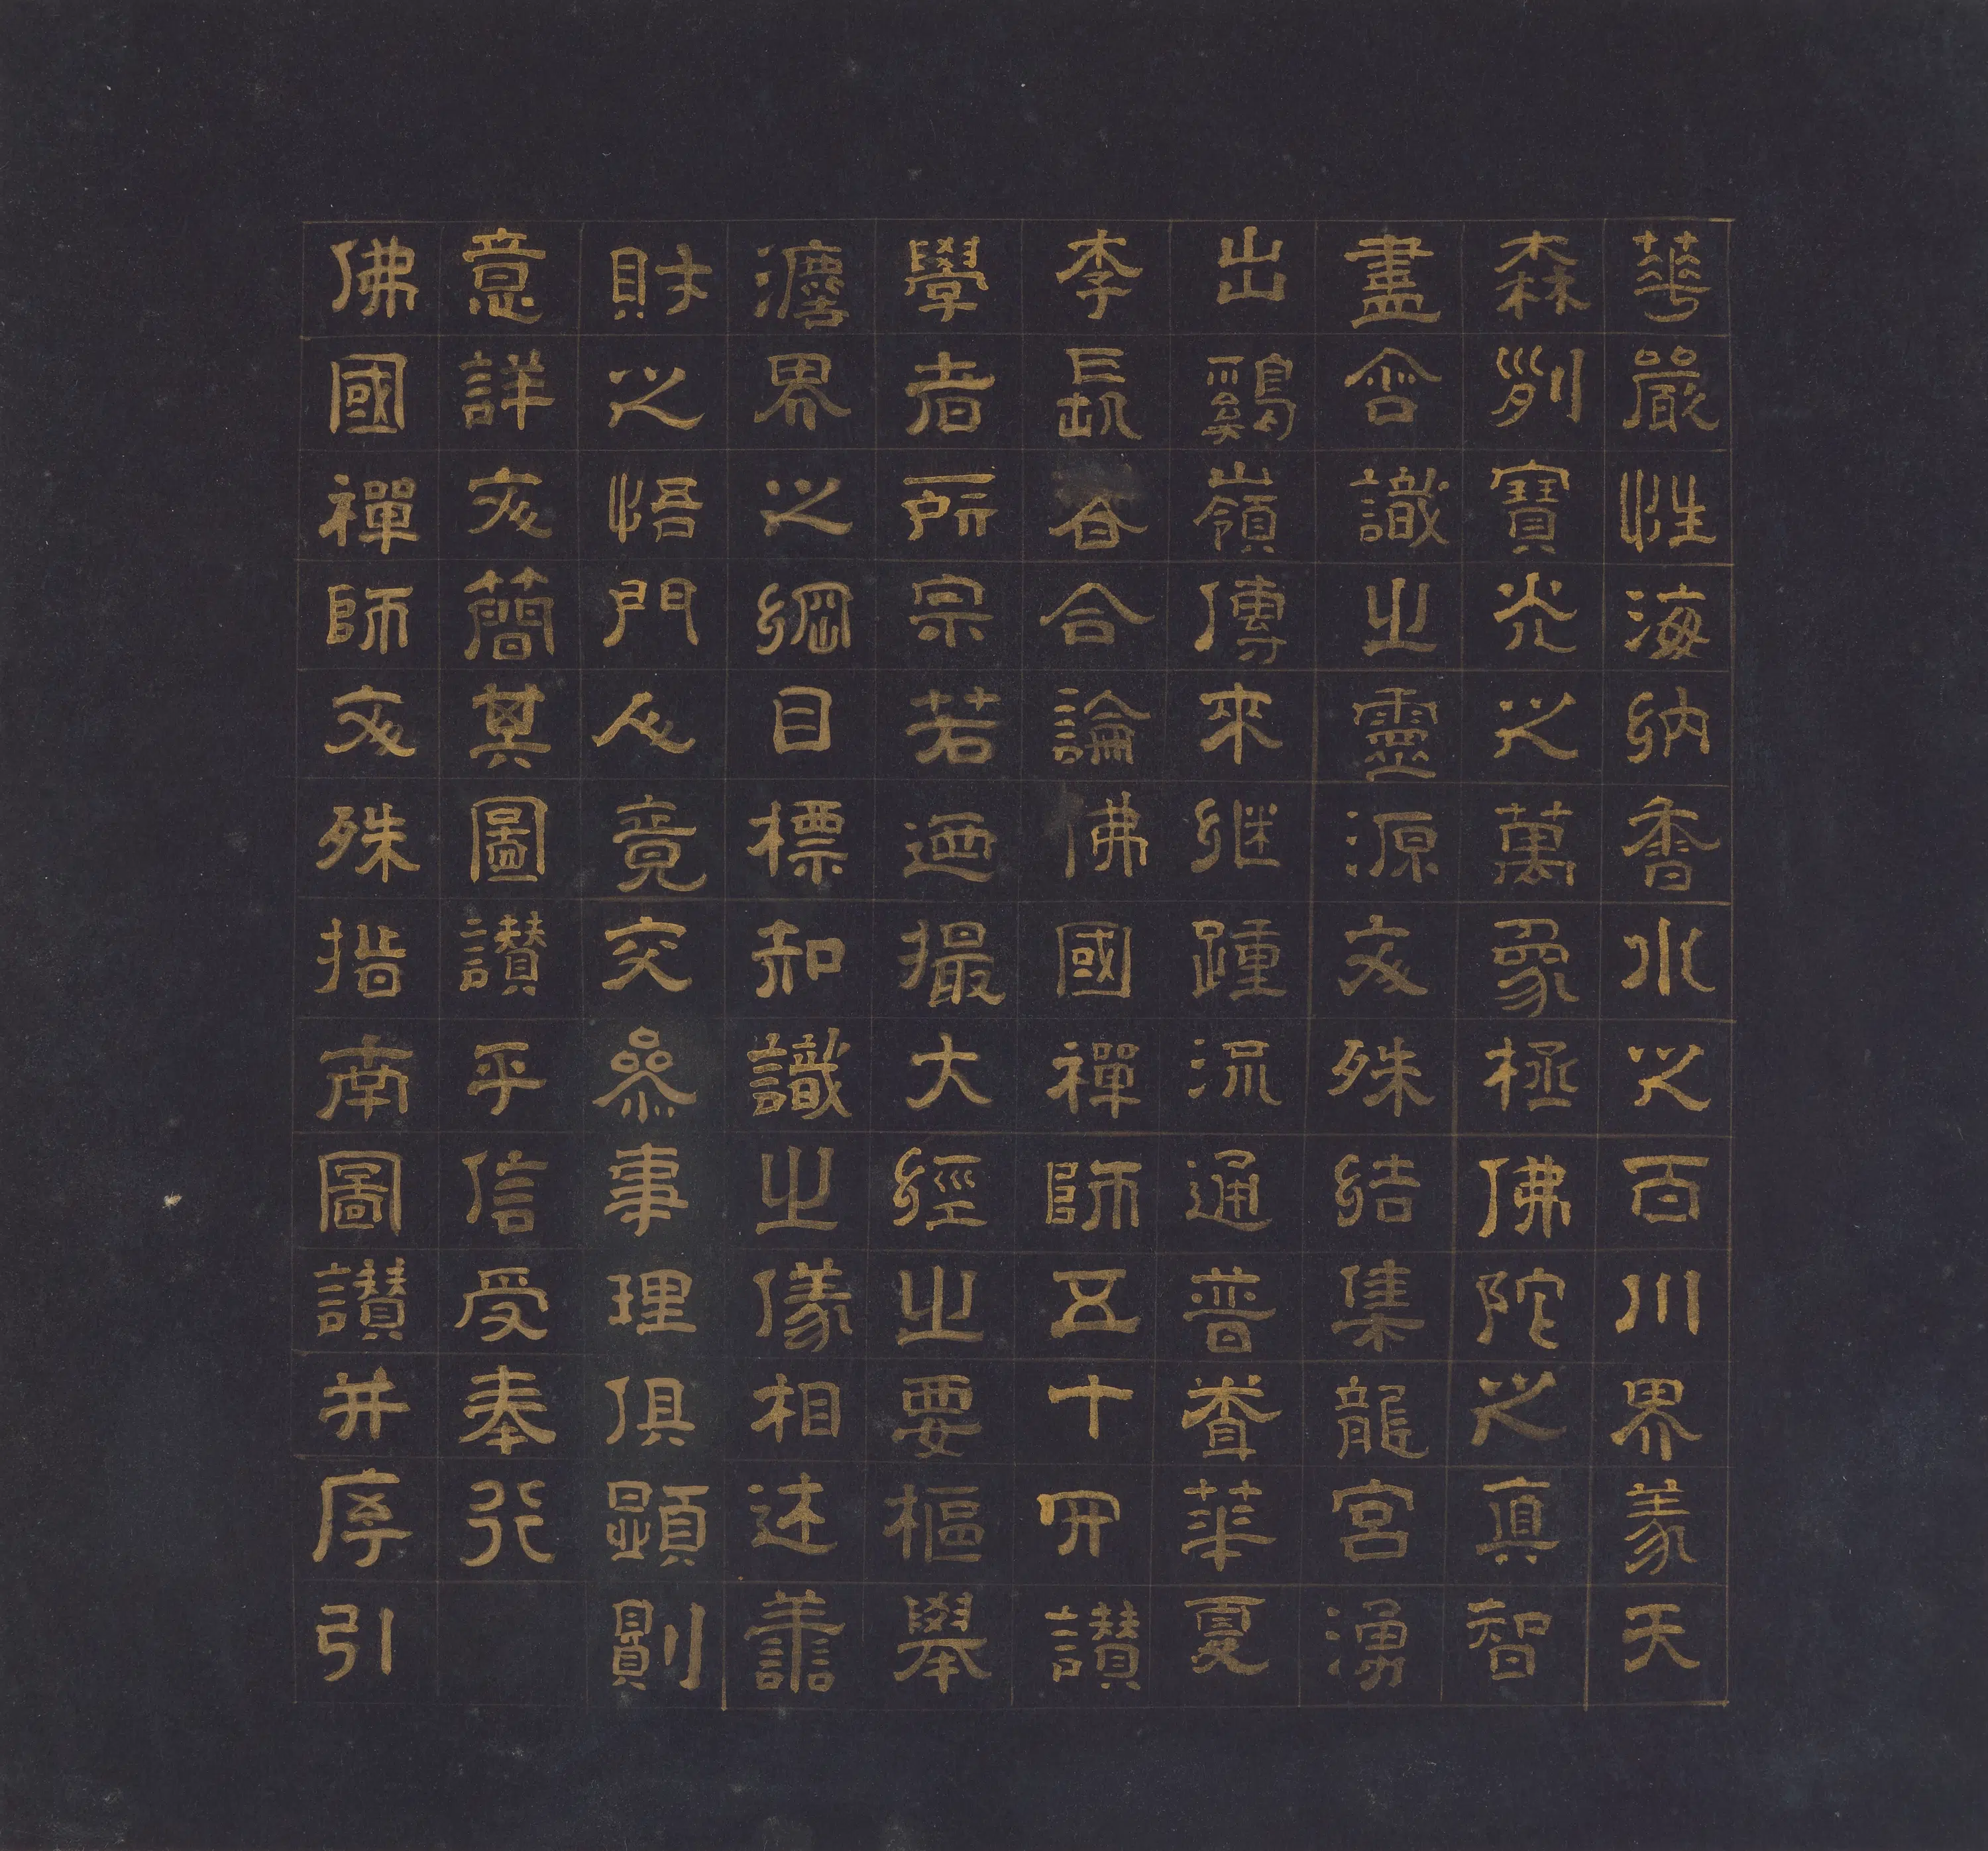 華嚴性海納香水之百川界義天
森列寶光之萬象極佛陀之真智
盡含識之靈源文殊結集龍宮湧
出鷄嶺傳來継踵流通普華夏
李長者合論佛國禪師五十四讚
學者所宗若迺撮大經之要樞舉
灋界之綱目標知識之儀相述善
財之悟門人竟交參事理俱顯則
意詳文簡其圖讚乎信受奉行
佛國禪師文殊指南圖讚并序引